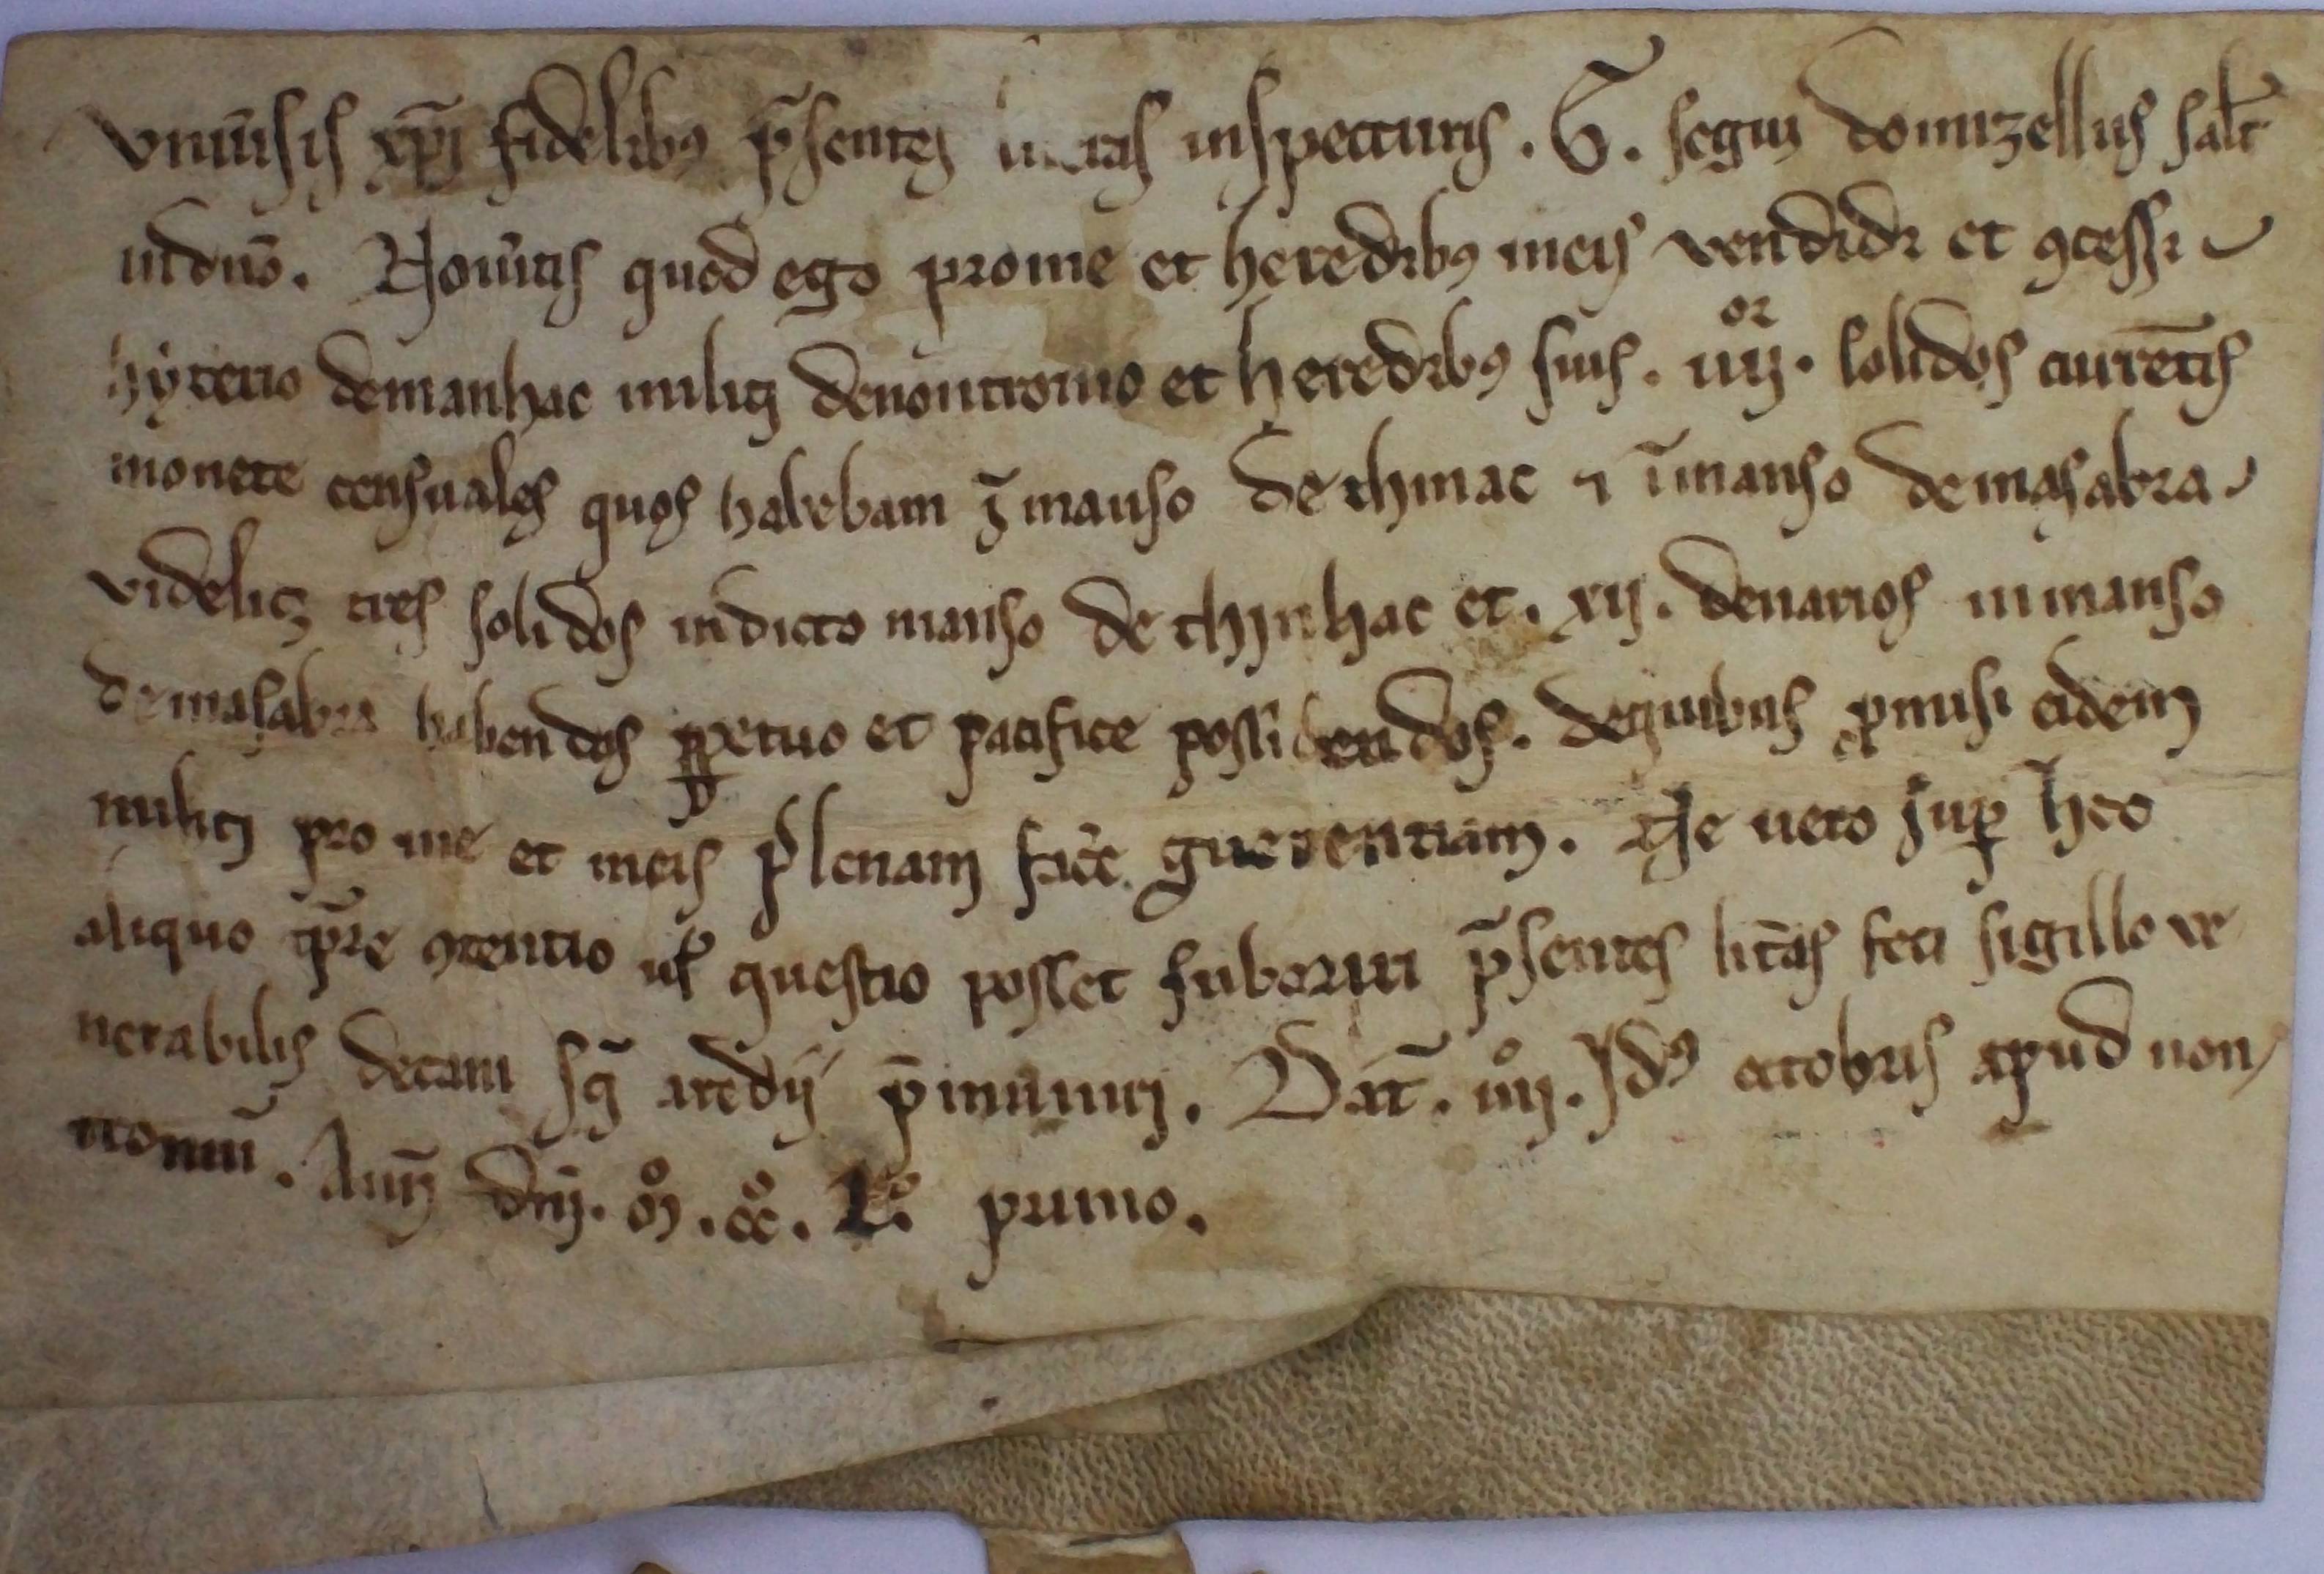 vniu̾sis xp̄i fidelibꝯ p̄sentes litt̾as inspecturis . G̃ . segui domizellus salt̄
in dn̄o . Nou̾itis quod ego pro me et heredibꝯ meis vendidi et ꝯcessi
hyterio de manhac militi de nontronio et heredibꝯ suis . iiij^or . solidos curr̄etis
monete censuales quos habebam ī manso de thinac ⁊ ī manso de masabra
videlicꝫ tres solidos in dicto manso de thinhac et . xij . denarios in manso
de masabra habendos ꝑpetuo et pacifice possidendos . de quibus ꝓmisi eidem
militi pro me et meis plenam fac̾e guerentiam . Ne vero sup̱ hoc
aliquo tp̄re ꝯtentio ul̾ questio posset suboriri p̄sentes litt̄as feci sigillo ve
nerabilis decani sc̄i aredij p̄muniri . Dat̄ . iiij^o . Idꝯ octobris apud non
troniū . Anno dn̄i . m^o . cc^o . L^o . primo .